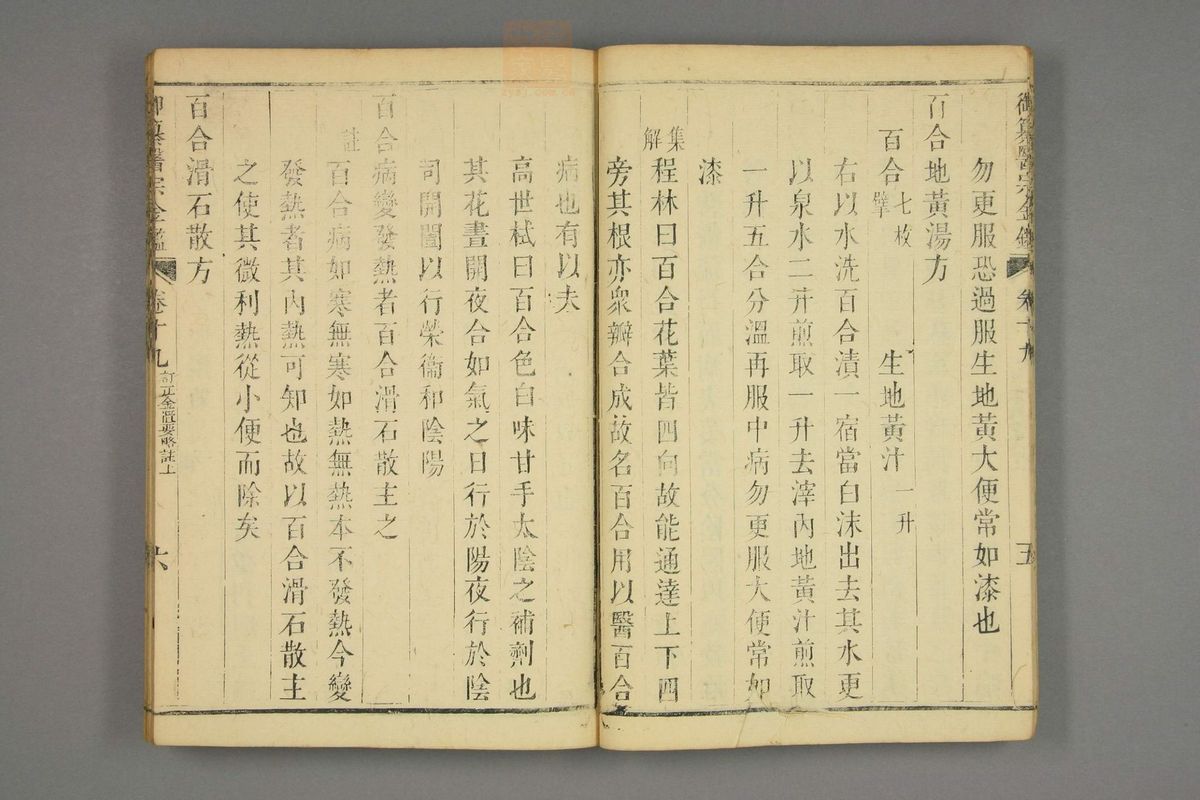 御纂醫宗金鑑 卷十九 五
勿更服恐過服生地黃大便常如漆也
百合地黃湯方
百合七枚擘 生地黃汁一升
右以水洗百合漬一宿當白沫出去其水更
以泉水二升煎取一升去滓內地黃汁煎取
一升五合分溫再服中病勿更服大便常如
漆
集解程林曰百合花葉皆四向故能通達上下四
旁其根亦眾瓣合成故名百合用以醫百合
病也有以夫
高世栻曰百合色白味甘手太陰之補劑也
其花晝開夜合如氣之日行於陽夜行於陰
司開闔以行榮衞和陰陽
百合病變發熱者百合滑石散主之
註百合病如寒無寒如熱無熱本不發熱今變
發熱者其內熱可知也故以百合滑石散主
之使其微利熱從小便而除矣
百合滑石散方
御纂醫宗金鑑 卷十九 訂正金匱要略註上 六